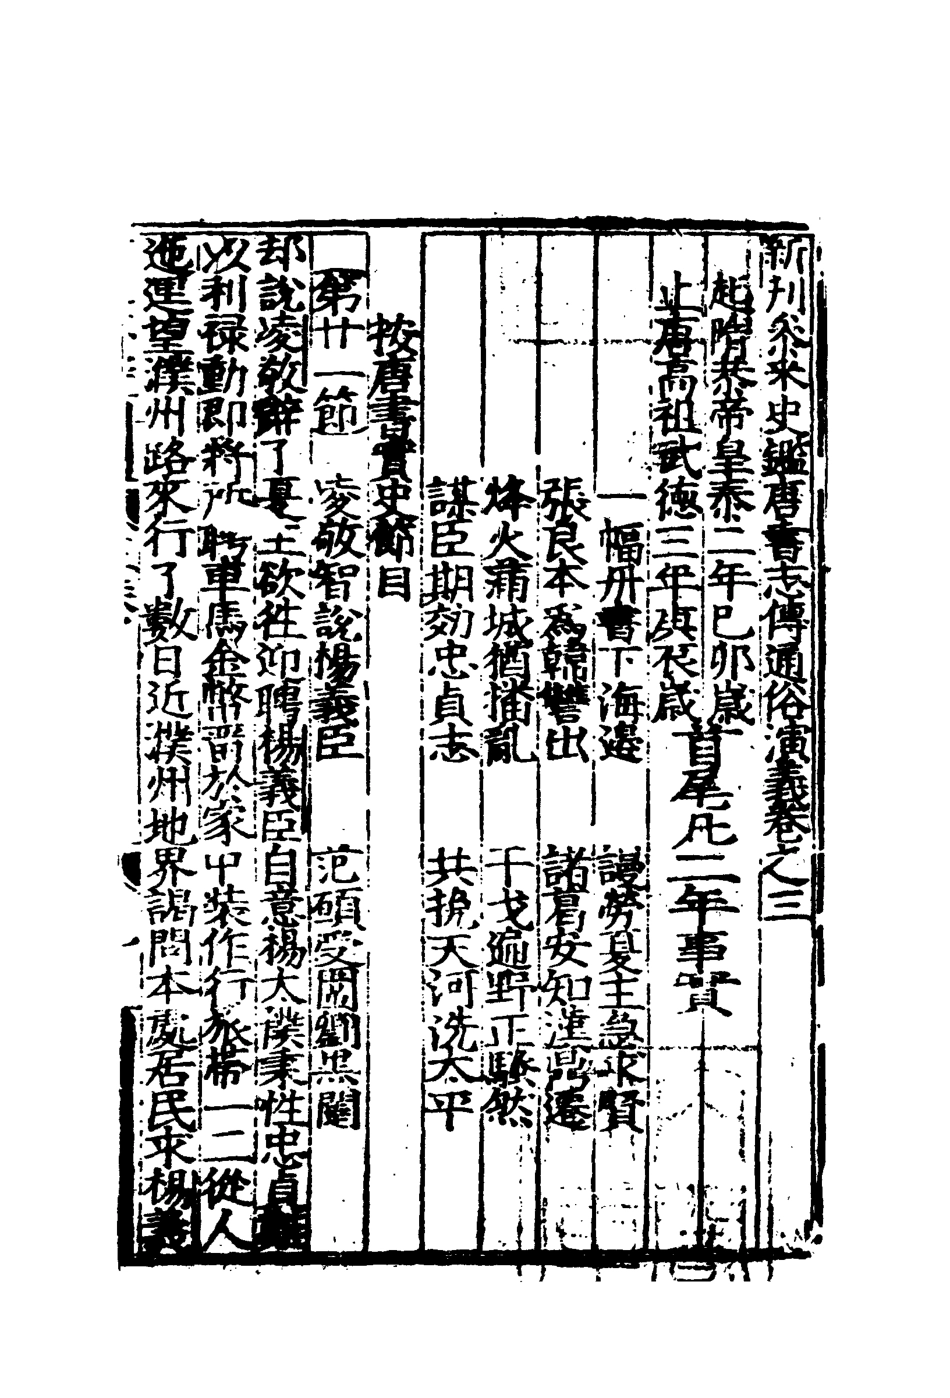 新刋叅采史鑑唐書志傳通俗演義卷之三
起隋恭帝皇泰二年己卯歲
止唐高祖武德三年庚辰歲
首尾凡二年事實
一幅丹書下海邉 謾勞夏主急求賢
張良本爲韓讐出 諸葛安知漢鼎遷
烽火蒲城猶播亂 干戈遍野正騷然
謀臣期効忠貞志 共挽天河洗太平
按唐書實史節目
第廿一節 凌敬智說楊義臣 范碩受開劉黑闥
却說凌敬辭了夏王欲徃迎聘楊義臣自意楊太僕秉性忠貞難
以利禄動即將所聘車馬金幣留於家中裝作行旅帶一二從人
迤逗望濮州路來行了數日近濮州地界謁問本處居民求楊義